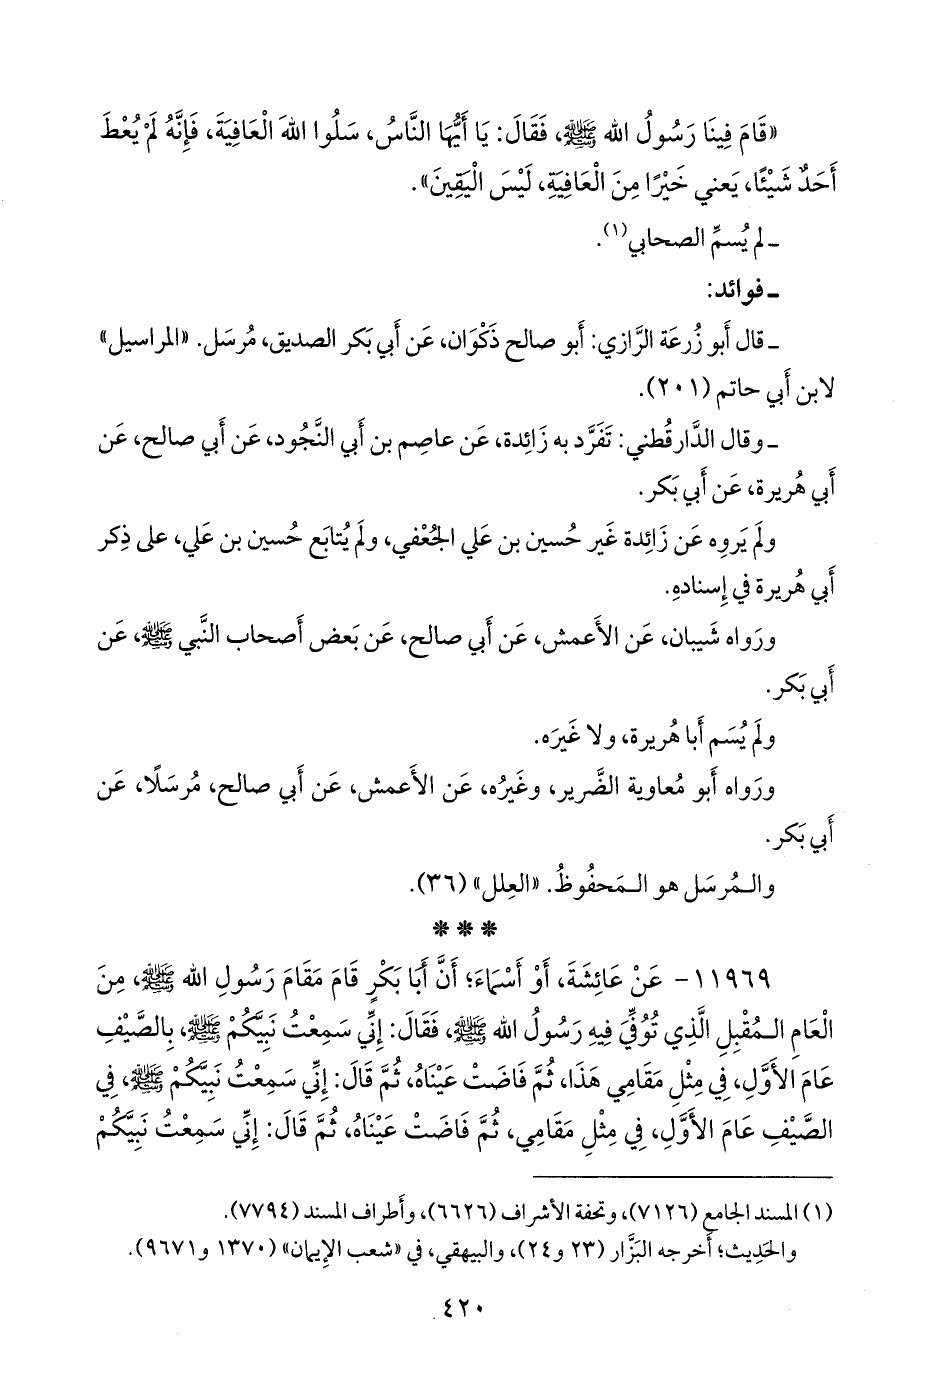 «قَامَ فِينَا رَسُولُ الله ﷺ، فَقَالَ: يَا أَيُّهَا النَّاسُ، سَلُوا اللهَ الْعَافِيَةَ، فَإِنَّهُ لَمْ يُعْطَ
أَحَدٌ شَيْئًا، يَعني خَيْرًا مِنَ الْعَافِيَةِ، لَيْسَ الْيَقِينَ».
ـ لم يُسمِّ الصحابي(١).
ـ فوائد:
ـ قال أَبو زُرعَة الرَّازي: أَبو صالح ذَكْوَان، عَن أَبي بَكر الصديق، مُرسَل. «المراسيل»
لابن أَبي حاتم (٢٠١).
ـ وقال الدَّارقُطني: تَفَرَّد به زَائِدة، عَن عاصِم بن أَبي النَّجُود، عَن أَبي صالح، عَن
أَبي هُريرة، عَن أَبي بَكر.
ولَم يَروِه عَن زَائِدة غَير حُسين بن عَلي الجُعْفي، ولَم يُتابَع حُسين بن عَلي، على ذِكر
أَبي هُريرة في إِسنادهِ.
ورَواه شَيبان، عَن الأَعمش، عَن أَبي صالح، عَن بَعض أَصحاب النَّبي ﷺ، عَن
أَبي بَكر.
ولَم يُسَم أَبا هُريرة، ولا غَيرَه.
ورَواه أَبو مُعاوية الضَّرير، وغَيرُه، عَن الأَعمش، عَن أَبي صالح، مُرسَلًا، عَن
أَبي بَكر.
والـمُرسَل هو الـمَحفُوظُ. «العِلل» (٣٦).
* * *
١١٩٦٩- عَنْ عَائِشَةَ، أَوْ أَسْمَاءَ؛ أَنَّ أَبَا بَكْرٍ قَامَ مَقَامَ رَسُولِ الله ﷺ، مِنَ
الْعَامِ الـمُقْبِلِ الَّذِي تُوُفِّيَ فِيهِ رَسُولُ الله ﷺ، فَقَالَ: إِنِّي سَمِعْتُ نَبِيَّكُمْ ﷺ، بِالصَّيْفِ
عَامَ الأَوَّلِ، فِي مِثْلِ مَقَامِي هَذَا، ثُمَّ فَاضَتْ عَيْنَاهُ، ثُمَّ قَالَ: إِنِّي سَمِعْتُ نَبِيَّكُمْ ﷺ، فِي
الصَّيْفِ عَامَ الأَوَّلِ، فِي مِثْلِ مَقَامِي، ثُمَّ فَاضَتْ عَيْنَاهُ، ثُمَّ قَالَ: إِنِّي سَمِعْتُ نَبِيَّكُمْ
(١) المسند الجامع (٧١٢٦)، وتحفة الأشراف (٦٦٢٦)، وأَطراف المسند (٧٧٩٤).
والحَدِيث؛ أَخرجه البَزَّار (٢٣ و٢٤)، والبيهقي، في «شعب الإِيمان» (١٣٧٠ و٩٦٧١).
٤٢٠